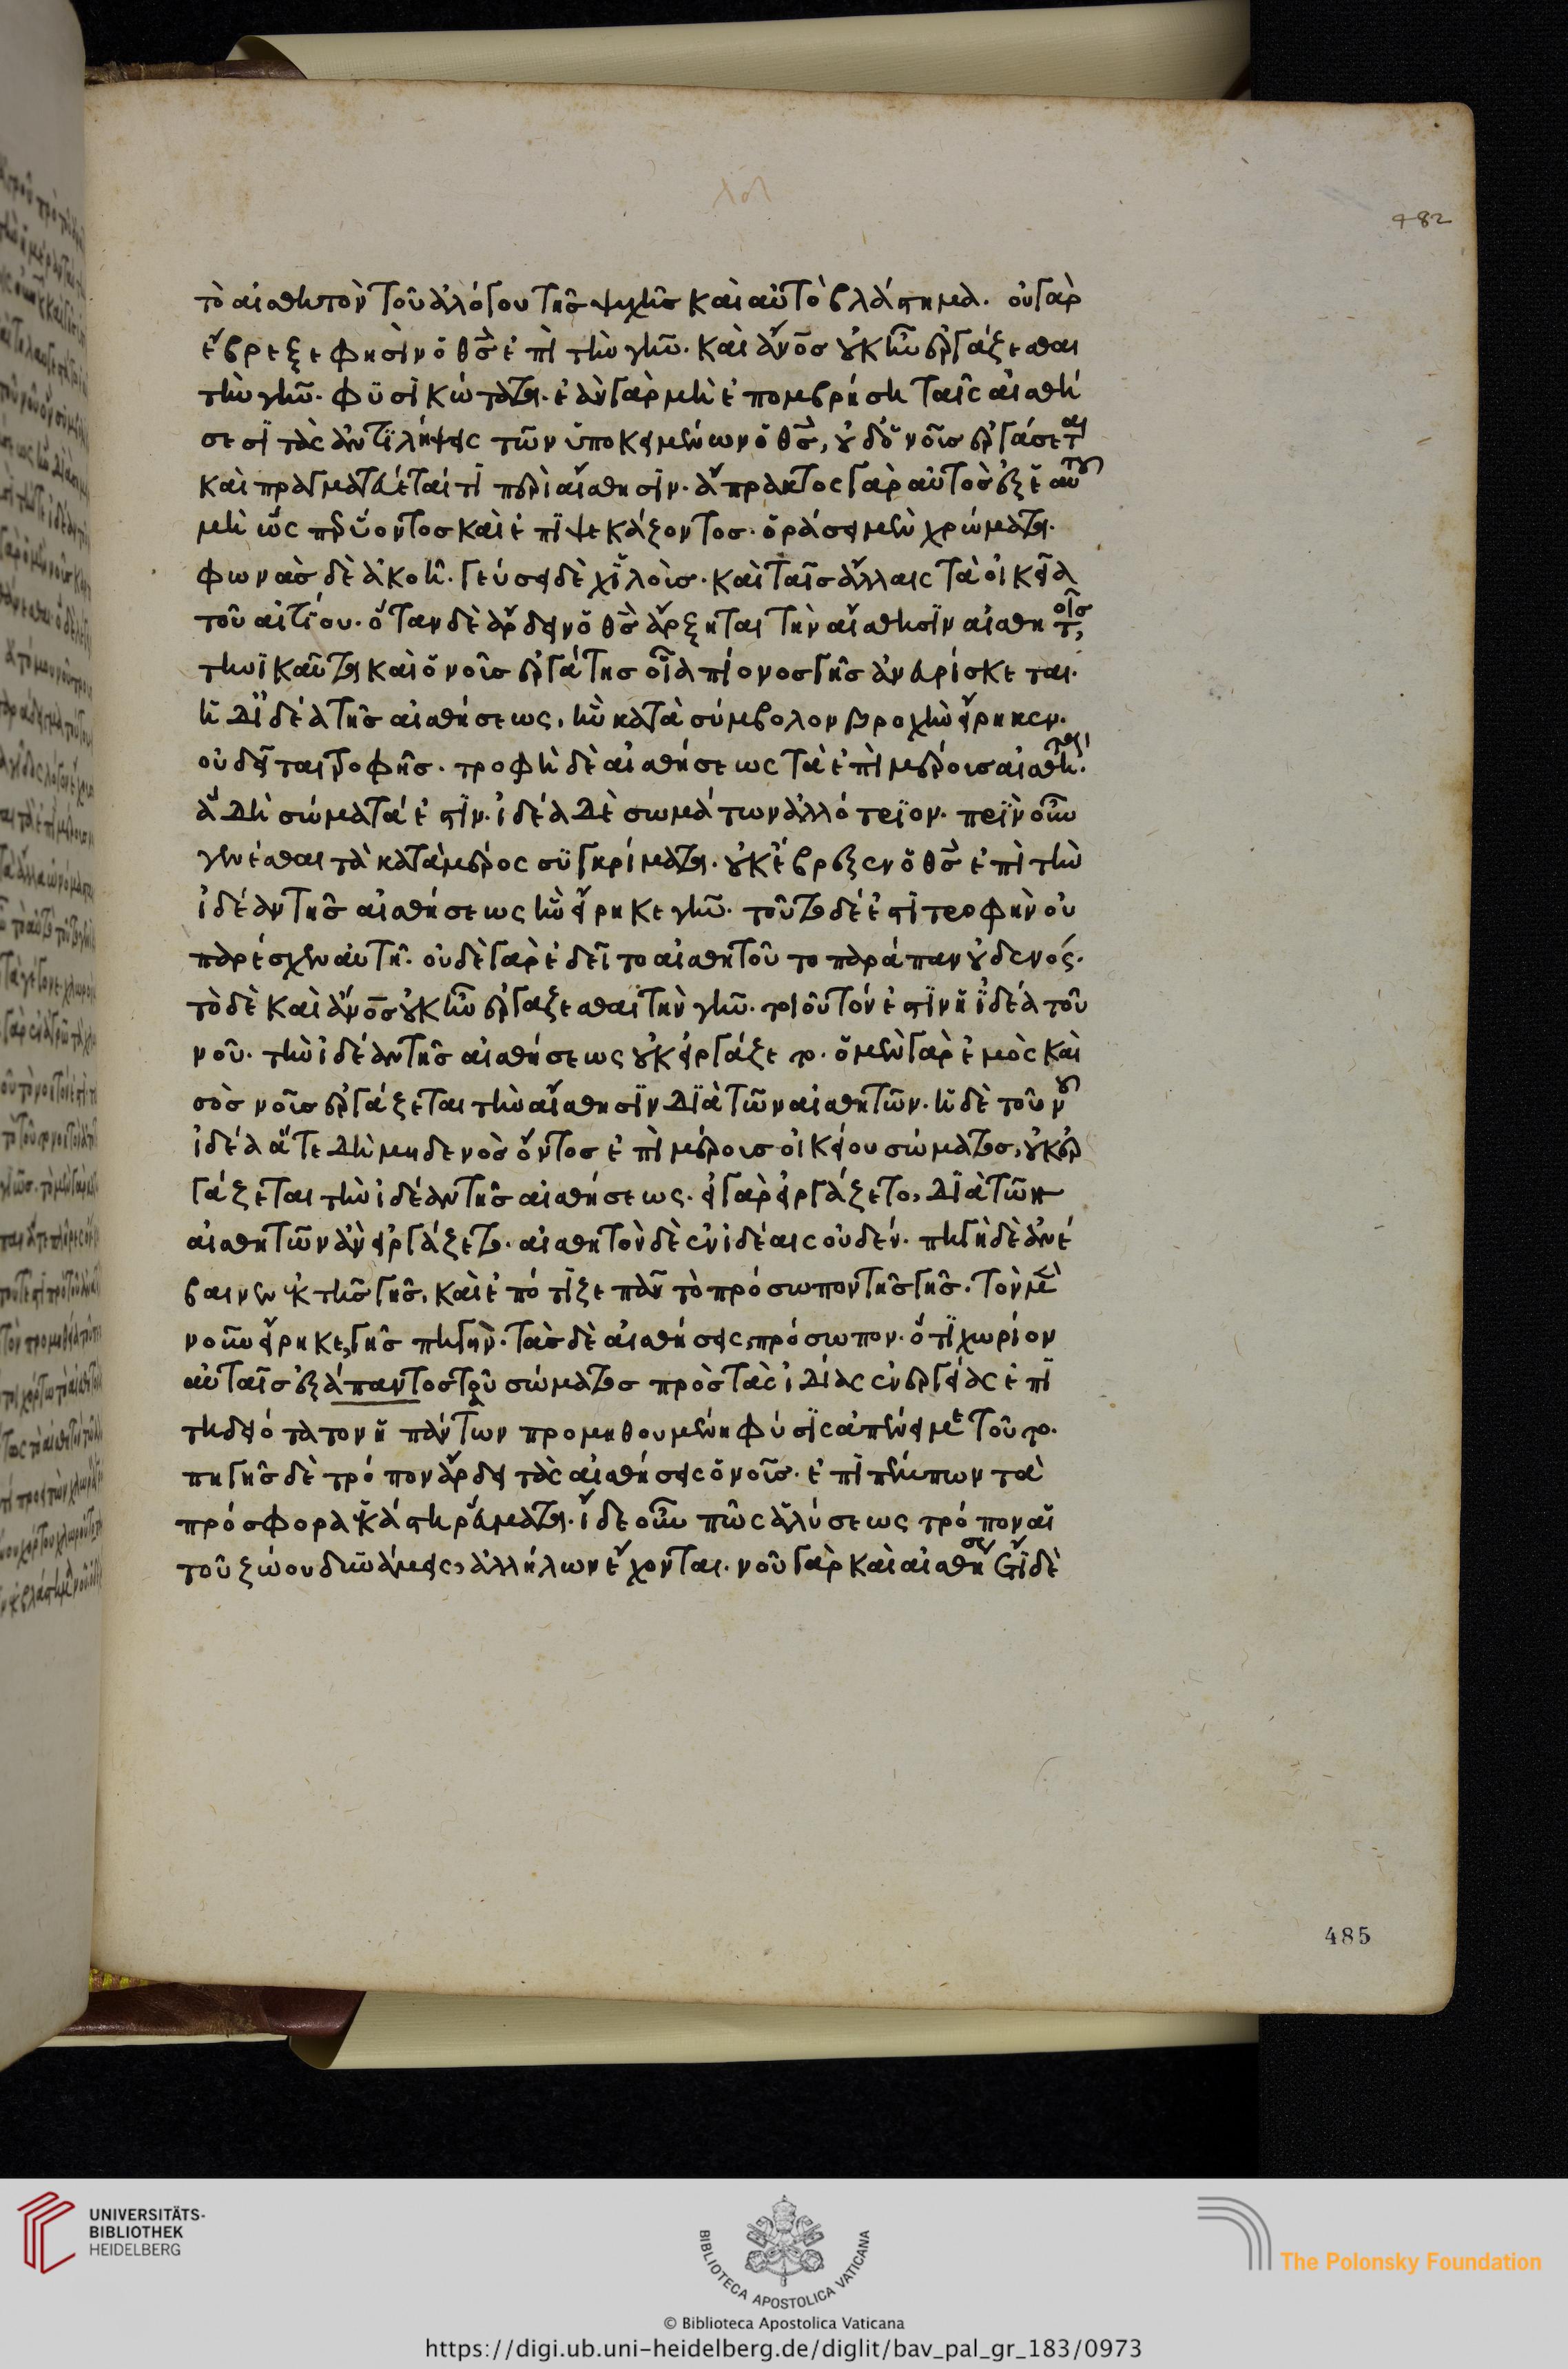 482
τὸ αἰσθητὸν τοῦ ἀλόγου τῆς ψυχῆς καὶ αὐτὸ βλάστημα. οὐ γὰρ
ἔβρεξε φησὶν ὁ θσ ἐπὶ τὴν γῆν. καὶ ἄνοσ οὐκ ἦν ἐργάζεσθαι
τὴν γῆν. φυσικώτατα. ἐὰν γὰρ μὴ ἐπομβρήσῃ ταῖς αἰσθή
σεσι τὰς ἀντιλήψεις τῶν ὑποκειμένων ὁ θσ, οὐδ ὁ νοῦσ ἐργάσεται
καὶ πραγματεύεταί τι περὶ αἴσθησιν. ἄπρακτος γὰρ αὐτὸσ ἐξ ἑαυτοῦ
μὴ ὡς περ ὕοντοσ καὶ ἐπιψεκάζοντοσ. ὁράσει μὲν χρώματα.
φωνὰσ δὲ ἀκοῆ. γεύσει δὲ χυλοὺσ. καὶ ταῖσ ἄλλαις τὰ οἰκεῖα
τοῦ αἰτίου. ὅταν δὲ ἄρδειν ὁ θσ ἄρξηται τὴν αἴσθησιν αἰσθητοῖσ,
τηνικαῦτα καὶ ὁ νοῦσ ἐργάτησ οἷα πίονοσ γῆσ ἀνευρίσκεται.
ἡ δ ἰδέα τῆσ αἰσθήσεως, ἣν κατὰ σύμβολον βροχὴν εἴρηκεν.
οὐ δεῖται τροφῆσ. τροφὴ δὲ αἰσθήσεως τὰ ἐπὶ μέρουσ αἰσθητὰ.
ἃ δὴ σώματά ἐστιν. ἰδέα δὲ σωμάτων ἀλλότριον. πρὶν οὖν
γενέσθαι τὰ κατὰ μέρος συγκρίματα. οὐκ ἔβρεξεν ὁ θσ ἐπὶ τὴν
ἰδέαν τῆσ αἰσθήσεως ἣν εἴρηκε γῆν. τοῦτο δέ ἐστι τροφὴν οὐ
παρέσχεν αὐτῆ. οὐδὲ γὰρ ἐδεῖτο αἰσθητοῦ το παράπαν οὐδενός.
τὸ δὲ καὶ ἄνοσ οὐκ ἦν ἐργάζεσθαι τὴν γῆν. τοιοῦτόν ἐστιν ἡ ἰδέα τοῦ
νοῦ. τὴν ἰδέαν τῆσ αἰσθήσεως οὐκ εἰργάζετο. ὁ μὲν γὰρ ἐμὸς καὶ
σὸσ νοῦσ ἐργάζεται τὴν αἴσθησιν διὰ τῶν αἰσθητῶν. ἡ δὲ τοῦ νοῦ
ἰδέα ἅτε δὴ μηδενὸσ ὄντοσ ἐπὶ μέρουσ οἰκείου σώματοσ, οὐκ ἐρ
γάζεται τὴν ἰδέαν τῆσ αἰσθήσεως. εἰ γὰρ εἰργάζετο, διὰ τῶν
αἰσθητῶν ἂν εἰργάζετο. αἰσθητὸν δὲ ἐν ἰδέαις οὐδέν. πηγὴ δὲ ἀνέ
βαινεν ἐκ τῆσ γῆσ, καὶ ἐπότιζε πᾶν τὸ πρόσωπον τῆσ γῆσ. τὸν μὲν
νοῦν εἴρηκε, γῆσ πηγὴν. τὰσ δὲ αἰσθήσεις, πρόσωπον. ὅτι χωρίον
αὐταῖσ ἐξ ἅπαντοσ τοῦ σώματοσ πρὸσ τὰς ἰδίας ἐνεργείας ἐπι
τηδειότατον ἡ πάντων προμηθουμένη φύσις ἀπένειμε τοῦτο.
πηγῆσ δὲ τρόπον ἄρδει τὰς αἰσθήσεις ὁ νοῦσ. ἐπιπέμπων τὰ
πρόσφορα ἑκάστη ῥεύματα. ἴδε οὖν πῶς ἁλύσεως τρόπον αἱ
τοῦ ζώου δυνάμεις, ἀλλήλων ἔχονται. νοῦ γὰρ καὶ αἰσθήσεως ἔτι δὲ
485
UNIVERSITÄTS-
BIBLIOTHEK
HEIDELBERG
BIBLIOTECA APOSTOLICA VATICANA
The Polonsky Foundation
© Biblioteca Apostolica Vaticana
https://digi.ub.uni-heidelberg.de/diglit/bav_pal_gr_183/0973